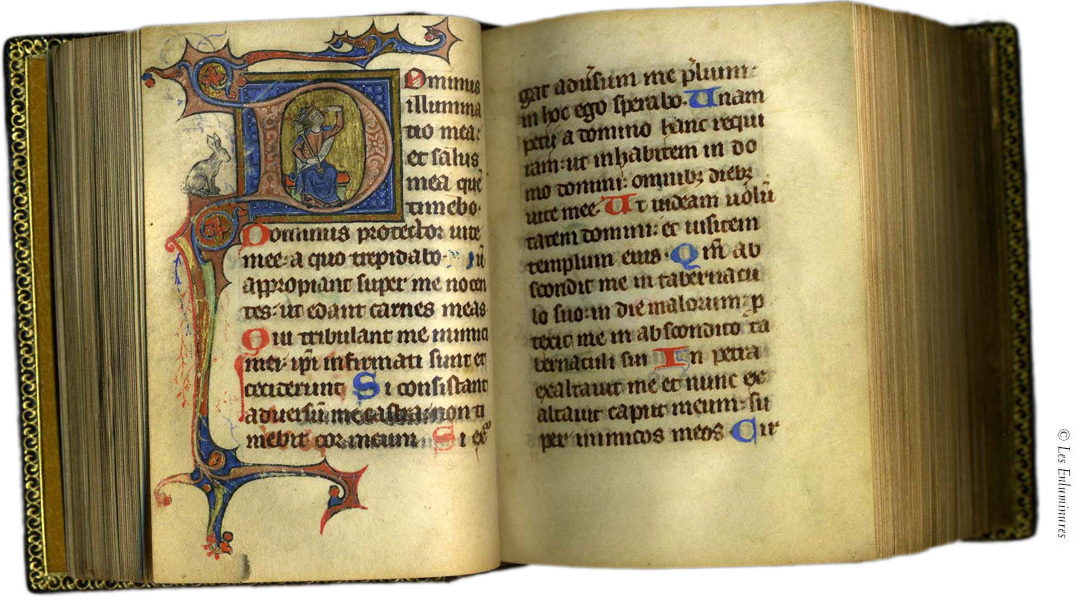 Dominus
illumina
tio mea:
et salus
mea que
timebo.
Dominus protector uite
mee: a quo trepidabo.
appropiant super me nocen
tes: ut edant carnes meas
Qui tribulant me inimici
mei: ipi infirmati sunt et
ceciderunt Si consistant
aduersū me castra: non ti
mebit cor meum Si ex
gat adūsum me plium:
in hoc ego sperabo. Unam
petii a domino hanc requi
ram: ut inhabitem in do
mo domini: omnibꝫ diebꝫ
uite mee. Ut uideam uolū
tatem domini: et uisitem
templum eius. Qm̄ ab
scondit me in tabernacu
lo suo: in die malorum: p
texit me in abscondito ta
bernaculi sui In petra
exaltauit me et nunc ex
altauit caput meum: su
per inimicos meos Cir
© Les Enluminures